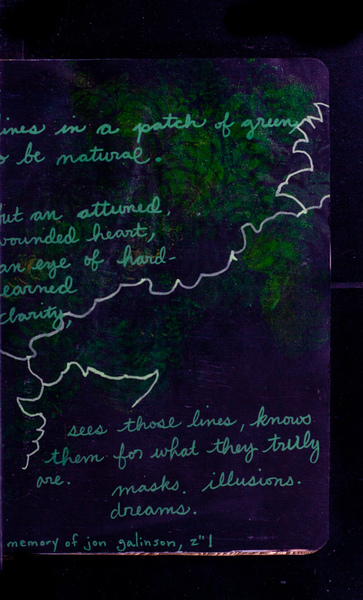 lines in a patch of green,
o be natural.
but an attuned,
wounded heart,
an eye of hard-
earned
clarity,
sees those lines, knows
them for what they trully
are.
masks. illusions.
dreams.
memory of jon galinson, z"l